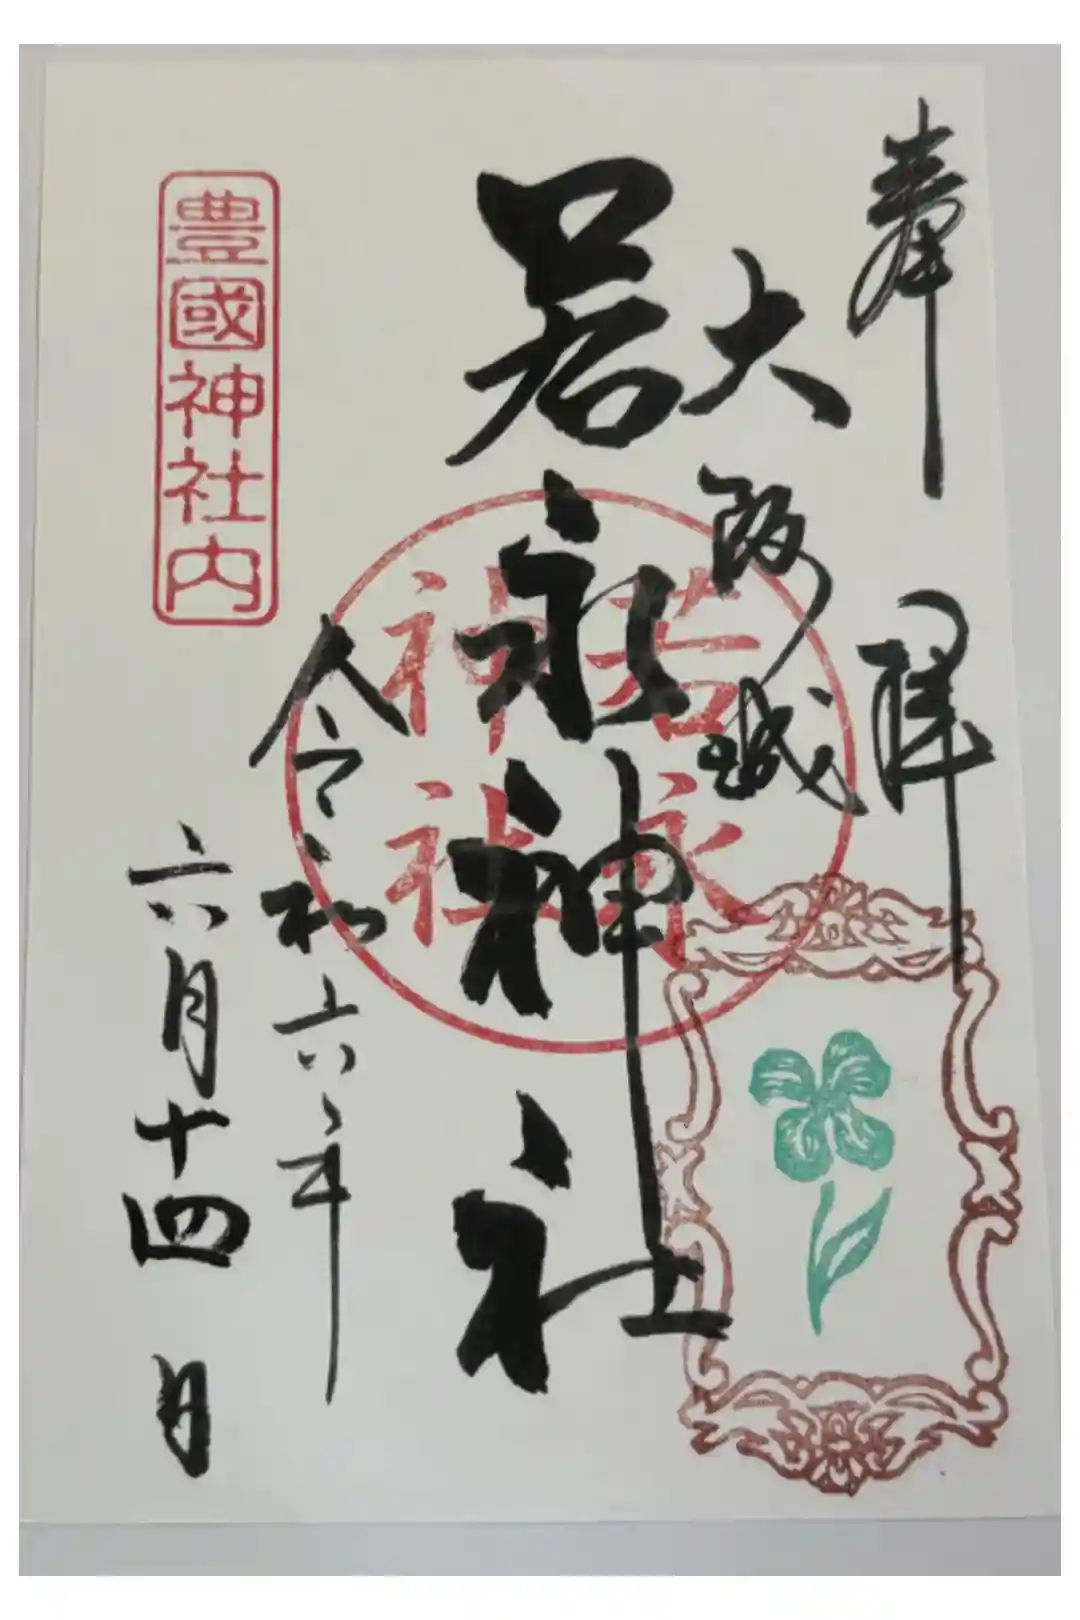 奉拝
大阪城
若永神社
若永
神社
令和六年
六月十四日
豊國神社内